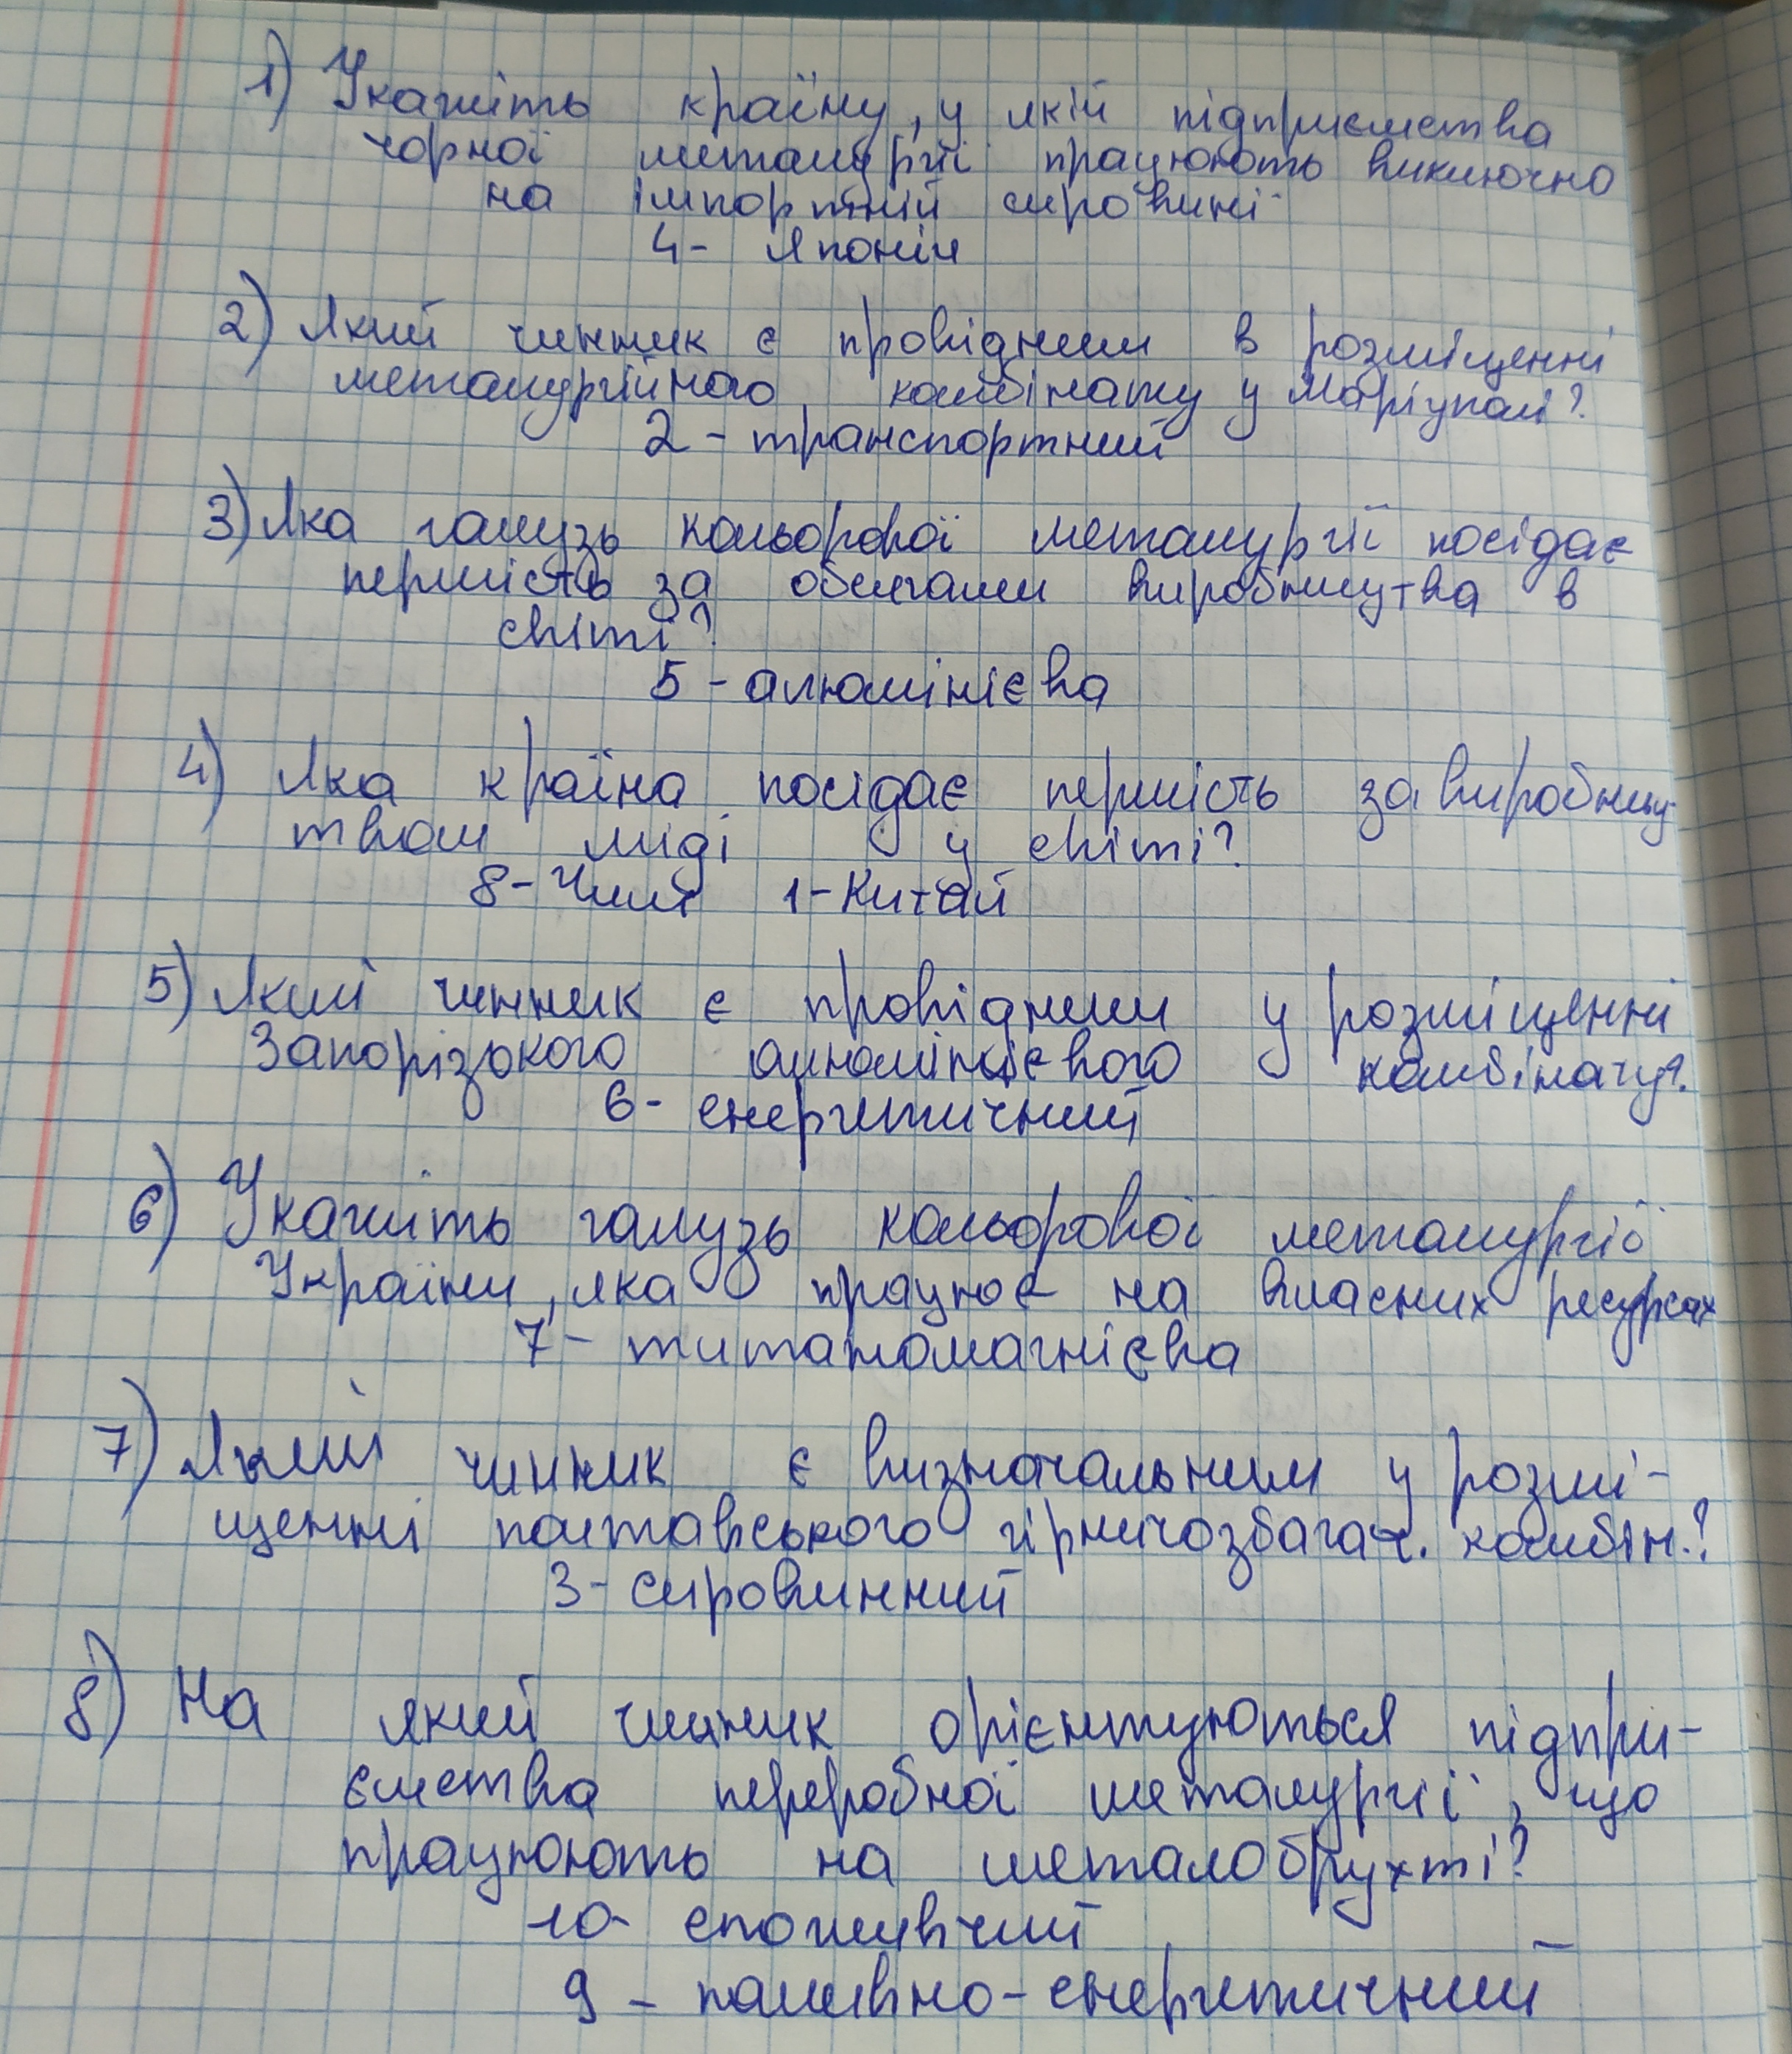 1) Укажіть країну, у якій підприємства
чорної металургії працюють виключно
на імпортній сировині
4- Японія
2) Який чинник є провідним в розміщенні
металургійного комбінату у Маріуполі?
2 - транспортний
3) Яка галузь кольорової металургії посідає
першість за обсягами виробництва в
світі?
5 - алюмінієва
4) Яка країна посідає першість за виробниц-
твом міді у світі?
8- Чилі 1- Китай
5) Який чинник є провідним у розміщенні
Запорізького алюмінієвого комбінату?
6- енергетичний
6) Укажіть галузь кольорової металургії
України, яка працює на власних ресурсах
7 - титаномагнієва
7) Який чинник є визначальним у розмі-
щенні полтавського гірничозбагач. комбін.?
3- сировинний
8) На який чинник орієнтуються підпри-
ємства переробної металургії, що
працюють на металобрухті?
10- споживчий
9 - паливно-енергетичний